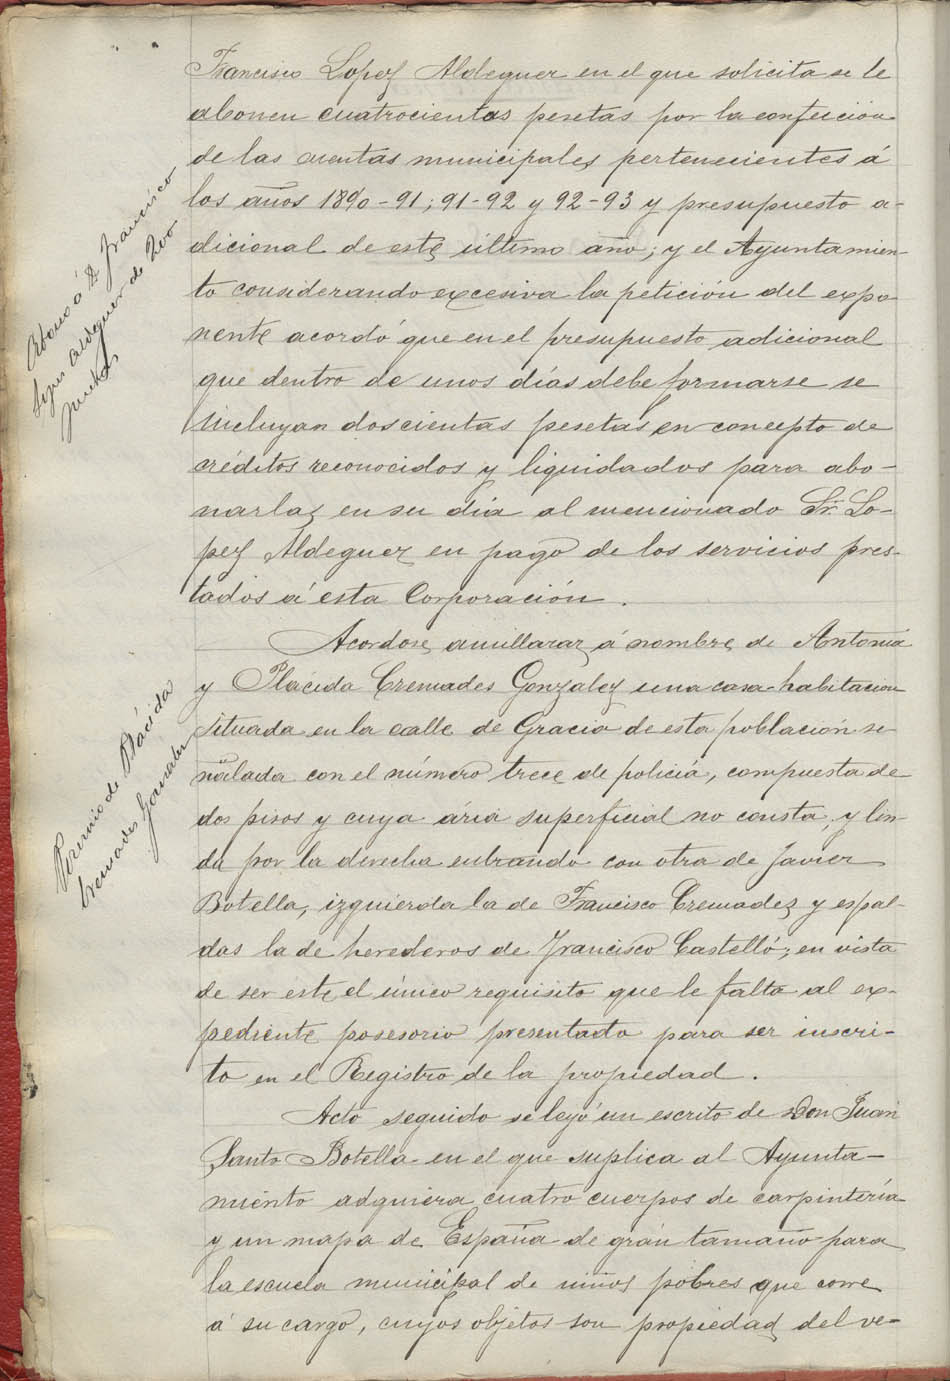 Francisco Lopez Aldeguer en el que solicita se le
abonen cuatrocientas pesetas por la confección
de las cuentas municipales pertenecientes á
los años 1890-91; 91-92 y 92-93 y presupuesto a-
dicional de este último año; y el Ayuntamien-
to considerando excesiva la petición del expo-
nente acordó que en el presupuesto adicional
que dentro de unos días debe formarse se
incluyan doscientas pesetas en concepto de
créditos reconocidos y liquidados para abo-
narlas en su dia al mencionado Sr. Lo-
pez Aldeguer en pago de los servicios pres-
tados á esta Corporación.
Acordose amillarar á nombre de Antonia
y Plácida Cremades Gonzalez una casa-habitacion
situada en la calle de Gracia de esta población se-
ñalada con el número trece de policía, compuesta de
dos pisos y cuya ária superficial no consta, y lin-
da por la derecha entrando con otra de Javier
Botella, izquierda la de Francisco Cremades y espal-
das la de herederos de Francisco Castelló; en vista
de ser este el único requisito que le falta al ex-
pediente posesorio presentado para ser inscri-
to en el Registro de la propiedad.
Acto seguido se leyó un escrito de Don Juan
Santo Botella en el que suplica al Ayunta-
miento adquiera cuatro cuerpos de carpintería
y un mapa de España de grán tamaño para
la escuela municipal de niños pobres que corre
á su cargo, cuyos objetos son propiedad del ve-
Abono á D. Francisco
Lopez Aldeguer de 200
pesetas
de Plácida
Cremades Gonzalez